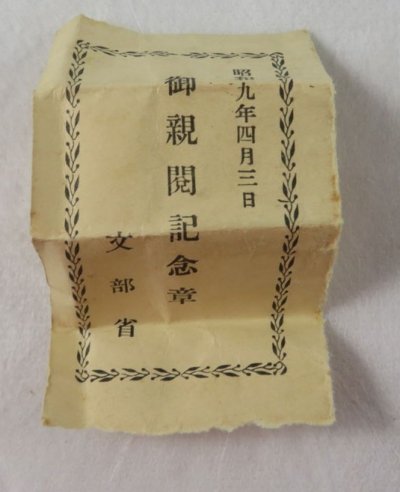 昭和九年四月三日
御親閲記念章
文部省